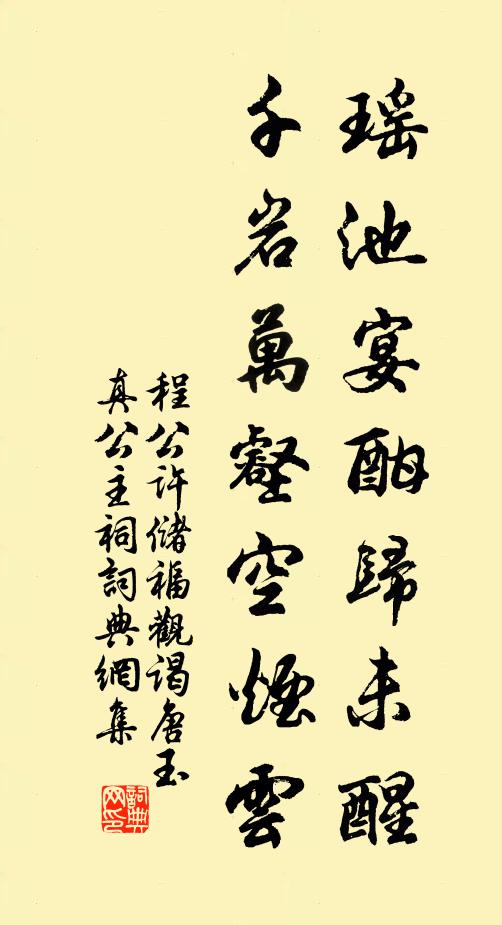 瑶池宴酣歸未醒
千岩萬壑空煙雲
程公許儲福觀謁唐玉
真公主祠詞典網集
詞典
网印